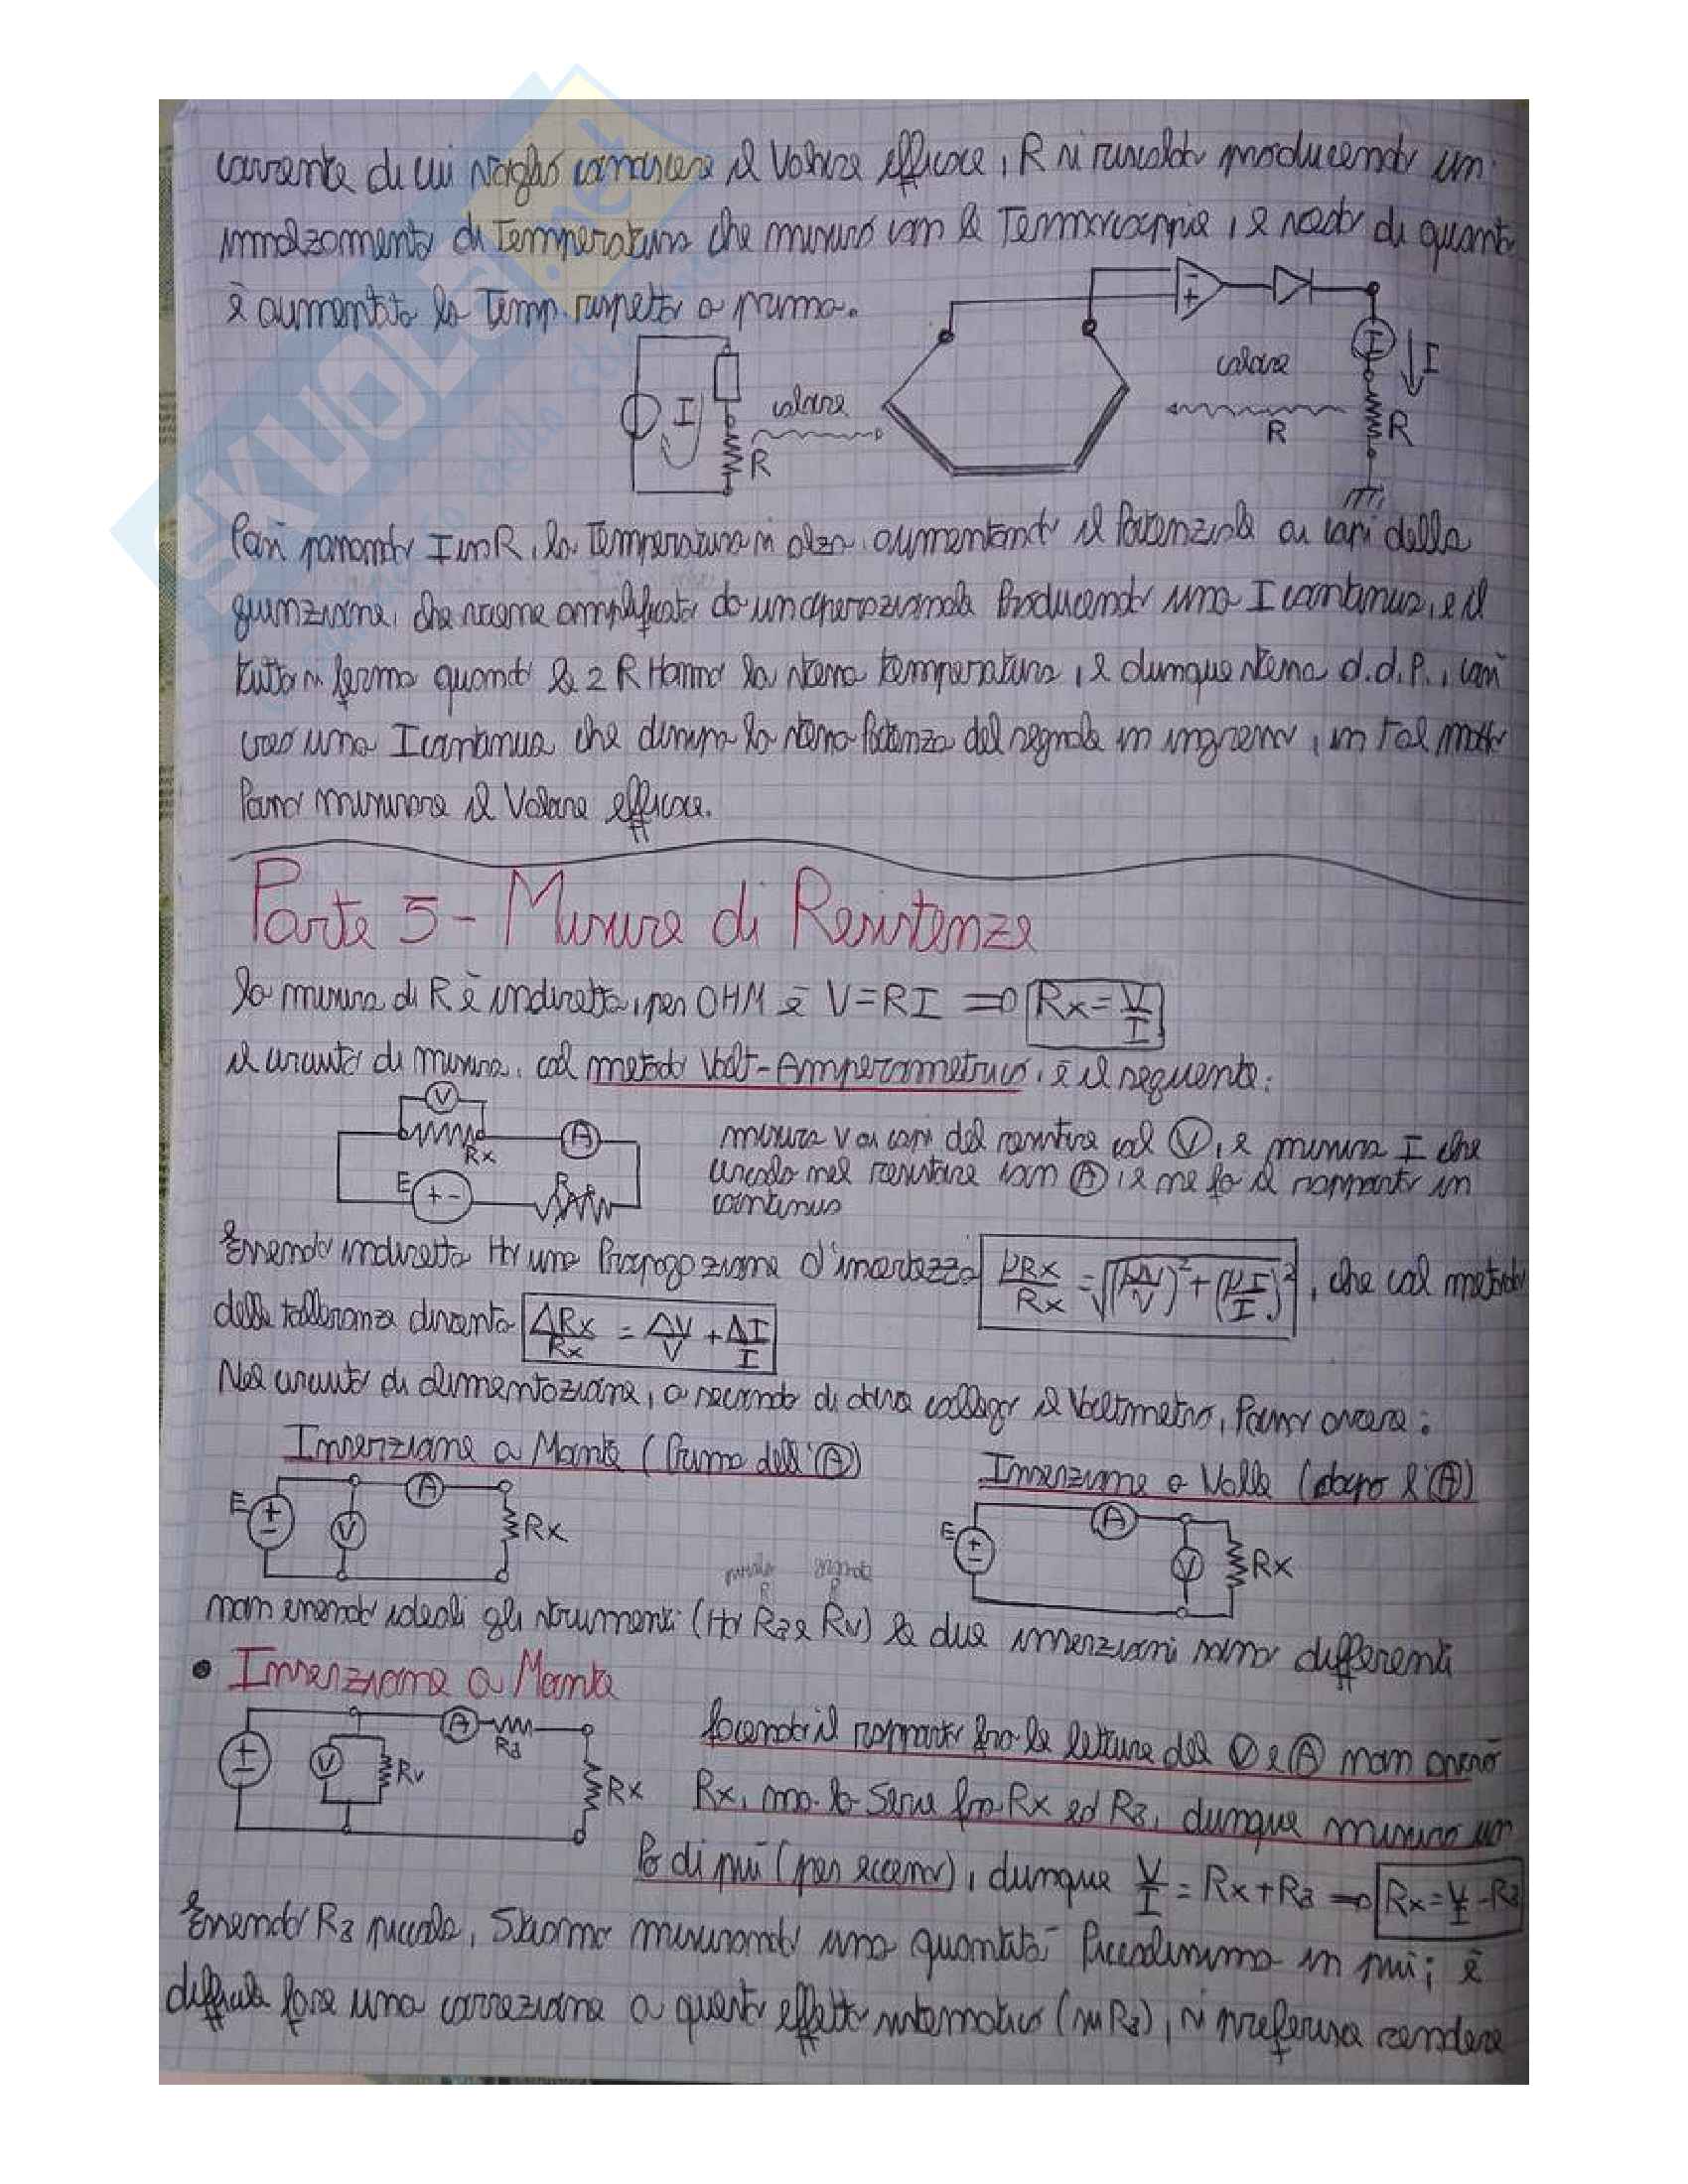 corrente di cui voglio conoscere il Valore efficace, R si riscalda producendo un
innalzamento di Temperatura che misuro con la Termocoppia, e vedo di quanto
è aumentata la Temp rispetto a prima.
I
calore
R
calore
R
I
I
R
Così passando I in R, la Temperatura si alza aumentando il Potenziale ai capi della
giunzione, che viene amplificato da un operazionale Producendo una I continua, e il
tutto si ferma quando le 2 R Hanno la stessa temperatura, e dunque stessa d.d.P., così
creo una I continua che dissipa la stessa Potenza del segnale in ingresso, in tal modo
Posso misurare il Valore efficace.
Parte 5 - Misure di Resistenze
la misura di R è indiretta, per OHM è V=RI ⇒ Rx = V/I
il circuito di misura, col metodo Volt-Amperometrico, è il seguente:
V
Rx
A
E
+ -
R
misura V ai capi del resistore col V, e misura I che
circola nel resistore con A, e ne fa il rapporto in
continua
Essendo indiretta Ho una Propagazione d'incertezza μRx/Rx = √((μV/V)² + (μI/I)²), che col metodo
delle tolleranze diventa ΔRx/Rx = ΔV/V + ΔI/I
Nel circuito di alimentazione, a seconda di dove collego il Voltmetro, Posso avere:
Inserzione a Monte (Prima dell'A)
Inserzione a Valle (dopo l'A)
E
+
-
V
A
Rx
E
+
-
A
V
Rx
piccola
grande
non essendo ideali gli strumenti (Ho Ra e Rv) le due inserzioni sono differenti
• Inserzione a Monte
+
-
V
Rv
A
Ra
Rx
facendo il rapporto fra le letture del V e A non avrò
Rx, ma la Serie fra Rx ed Ra, dunque misuro un
Pò di più (per eccesso), dunque V/I = Rx + Ra ⇒ Rx = V/I - Ra
Essendo Ra piccola, Stiamo misurando una quantità Piccolissima in più; è
difficile fare una correzione a questo effetto sistematico (su Ra), si preferisce rendere
SKUOLA.net